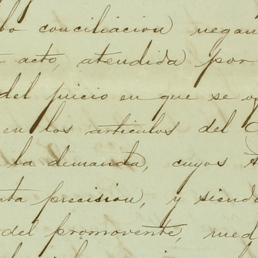 conciliacion negan
acto, atendida por
del juicio en que se
en los articulos del
la demanda, cuyos
precision, y siend
del promovente,